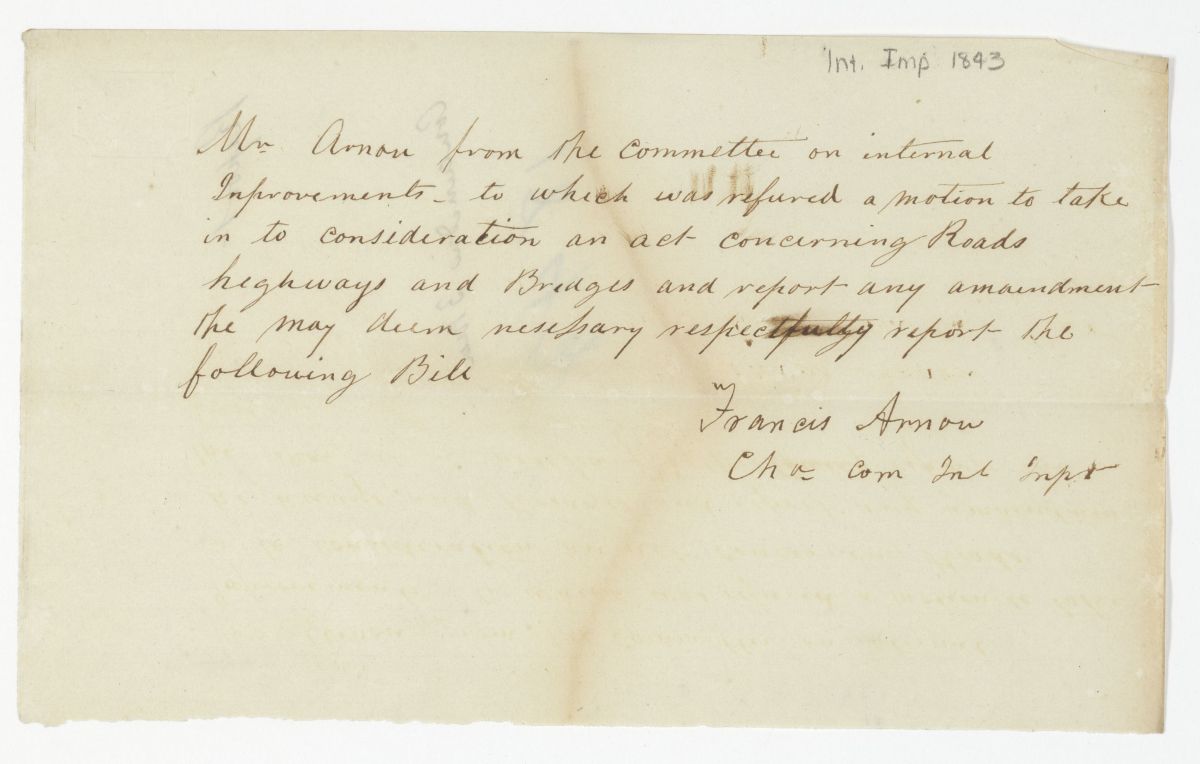 Int. Imp 1843
Mr Arnau from the committee on internal
Inprovements - to which was refured a motion to take
in to consideration an act concerning Roads
heghways and Bredges and report any amaendment
the may deem nesessary respectfully report the
following Bill
Francis Arnau
Cha com Int Inpt